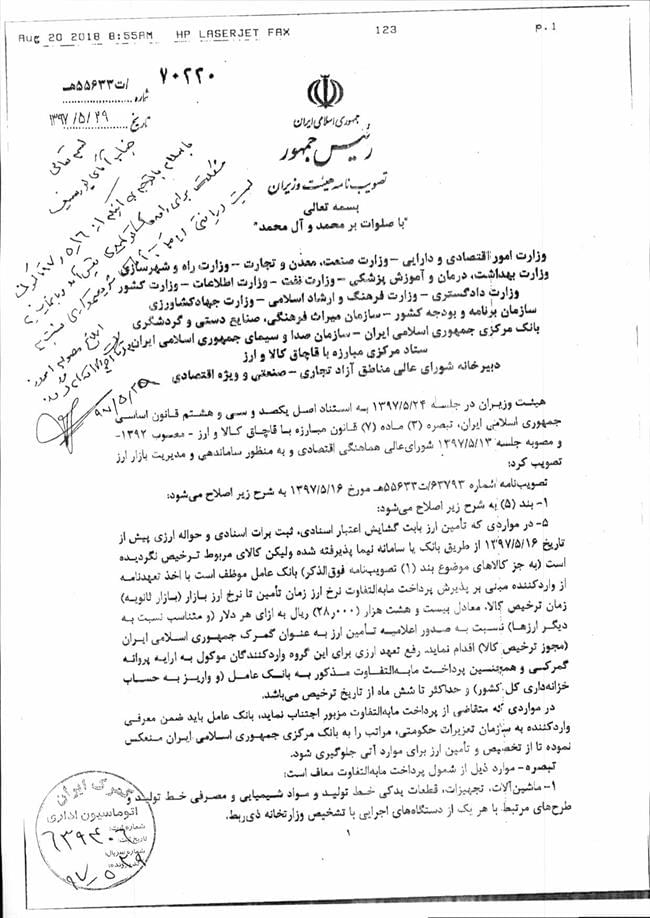 Aug 20 2018 8:55AM HP LASERJET FAX 123 p.1
۷۰۲۲۰ /ت۵۵۶۳۳هـ
شماره
تاریخ ۱۳۹۷/۵/۲۹
جمهوری اسلامی ایران
رئیس جمهور
تصویب نامه هیئت وزیران
بسمه تعالی
"با صلوات بر محمد و آل محمد"
وزارت امور اقتصادی و دارایی – وزارت صنعت، معدن و تجارت – وزارت راه و شهرسازی
وزارت بهداشت، درمان و آموزش پزشکی – وزارت نفت – وزارت اطلاعات – وزارت کشور
وزارت دادگستری – وزارت فرهنگ و ارشاد اسلامی – وزارت جهادکشاورزی
سازمان برنامه و بودجه کشور – سازمان میراث فرهنگی، صنایع دستی و گردشگری
بانک مرکزی جمهوری اسلامی ایران – سازمان صدا و سیمای جمهوری اسلامی ایران
ستاد مرکزی مبارزه با قاچاق کالا و ارز
دبیرخانه شورای عالی مناطق آزاد تجاری – صنعتی و ویژه اقتصادی
هیئت وزیران در جلسه ۱۳۹۷/۵/۲۴ به استناد اصل یکصد و سی و هشتم قانون اساسی
جمهوری اسلامی ایران، تبصره (۳) ماده (۷) قانون مبارزه با قاچاق کالا و ارز - مصوب ۱۳۹۲-
و مصوبه جلسه ۱۳۹۷/۵/۱۳ شورای‌عالی هماهنگی اقتصادی و به منظور ساماندهی و مدیریت بازار ارز
تصویب کرد:
تصویب‌نامه شماره ۶۳۷۹۳/ت۵۵۶۳۳هـ مورخ ۱۳۹۷/۵/۱۶ به شرح زیر اصلاح می‌شود:
۱- بند (۵) به شرح زیر اصلاح می‌شود:
۵- در مواردی که تأمین ارز بابت گشایش اعتبار اسنادی، ثبت برات اسنادی و حواله ارزی پیش از
تاریخ ۱۳۹۷/۵/۱۶ از طریق بانک یا سامانه نیما پذیرفته شده ولیکن کالای مربوط ترخیص نگردیده
است (به جز کالاهای موضوع بند (۱) تصویب‌نامه فوق‌الذکر) بانک عامل موظف است با اخذ تعهدنامه
از واردکننده مبنی بر پذیرش پرداخت مابه‌التفاوت نرخ ارز زمان تأمین تا نرخ ارز بازار (بازار ثانویه)
زمان ترخیص کالا، معادل بیست و هشت هزار (۲۸٫۰۰۰) ریال به ازای هر دلار (و متناسب نسبت به
دیگر ارزها) نسبت به صدور اعلامیه تأمین ارز به عنوان گمرک جمهوری اسلامی ایران
(مجوز ترخیص کالا) اقدام نماید. رفع تعهد ارزی برای این گروه واردکنندگان موکول به ارایه پروانه
گمرکی و همچنین پرداخت مابه‌التفاوت مذکور به بانک عامل (و واریز به حساب
خزانه‌داری کل کشور) و حداکثر تا شش ماه از تاریخ ترخیص می‌باشد.
در مواردی که متقاضی از پرداخت مابه‌التفاوت مزبور اجتناب نماید، بانک عامل باید ضمن معرفی
واردکننده به سازمان تعزیرات حکومتی، مراتب را به بانک مرکزی جمهوری اسلامی ایران منعکس
نموده تا از تخصیص و تأمین ارز برای موارد آتی جلوگیری شود.
تبصره- موارد ذیل از شمول پرداخت مابه‌التفاوت معاف است:
۱- ماشین‌آلات، تجهیزات، قطعات یدکی خط تولید و مواد شیمیایی و مصرفی خط تولید و
طرح‌های مرتبط با هر یک از دستگاه‌های اجرایی با تشخیص وزارتخانه ذی‌ربط.
۱
گمرک ایران
اتوماسیون اداری
شماره ثبت: